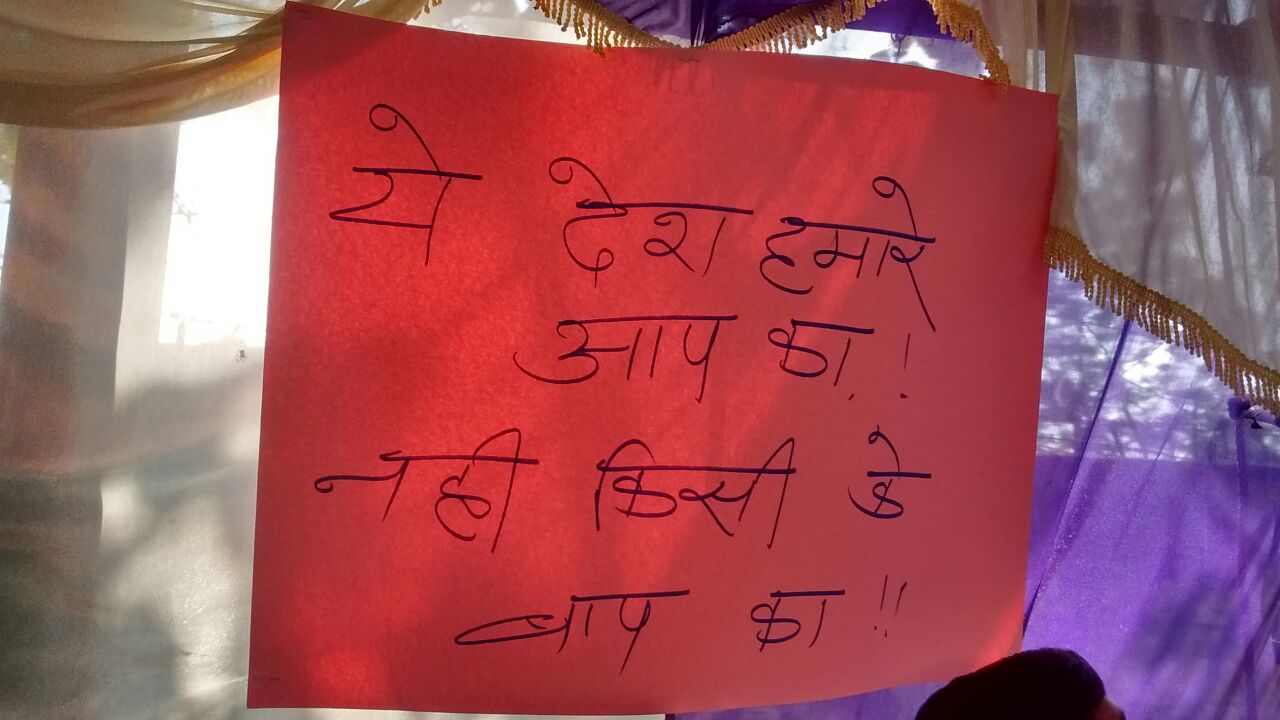 ये देश हमारे
आप का !
नही किसी के
बाप का !!